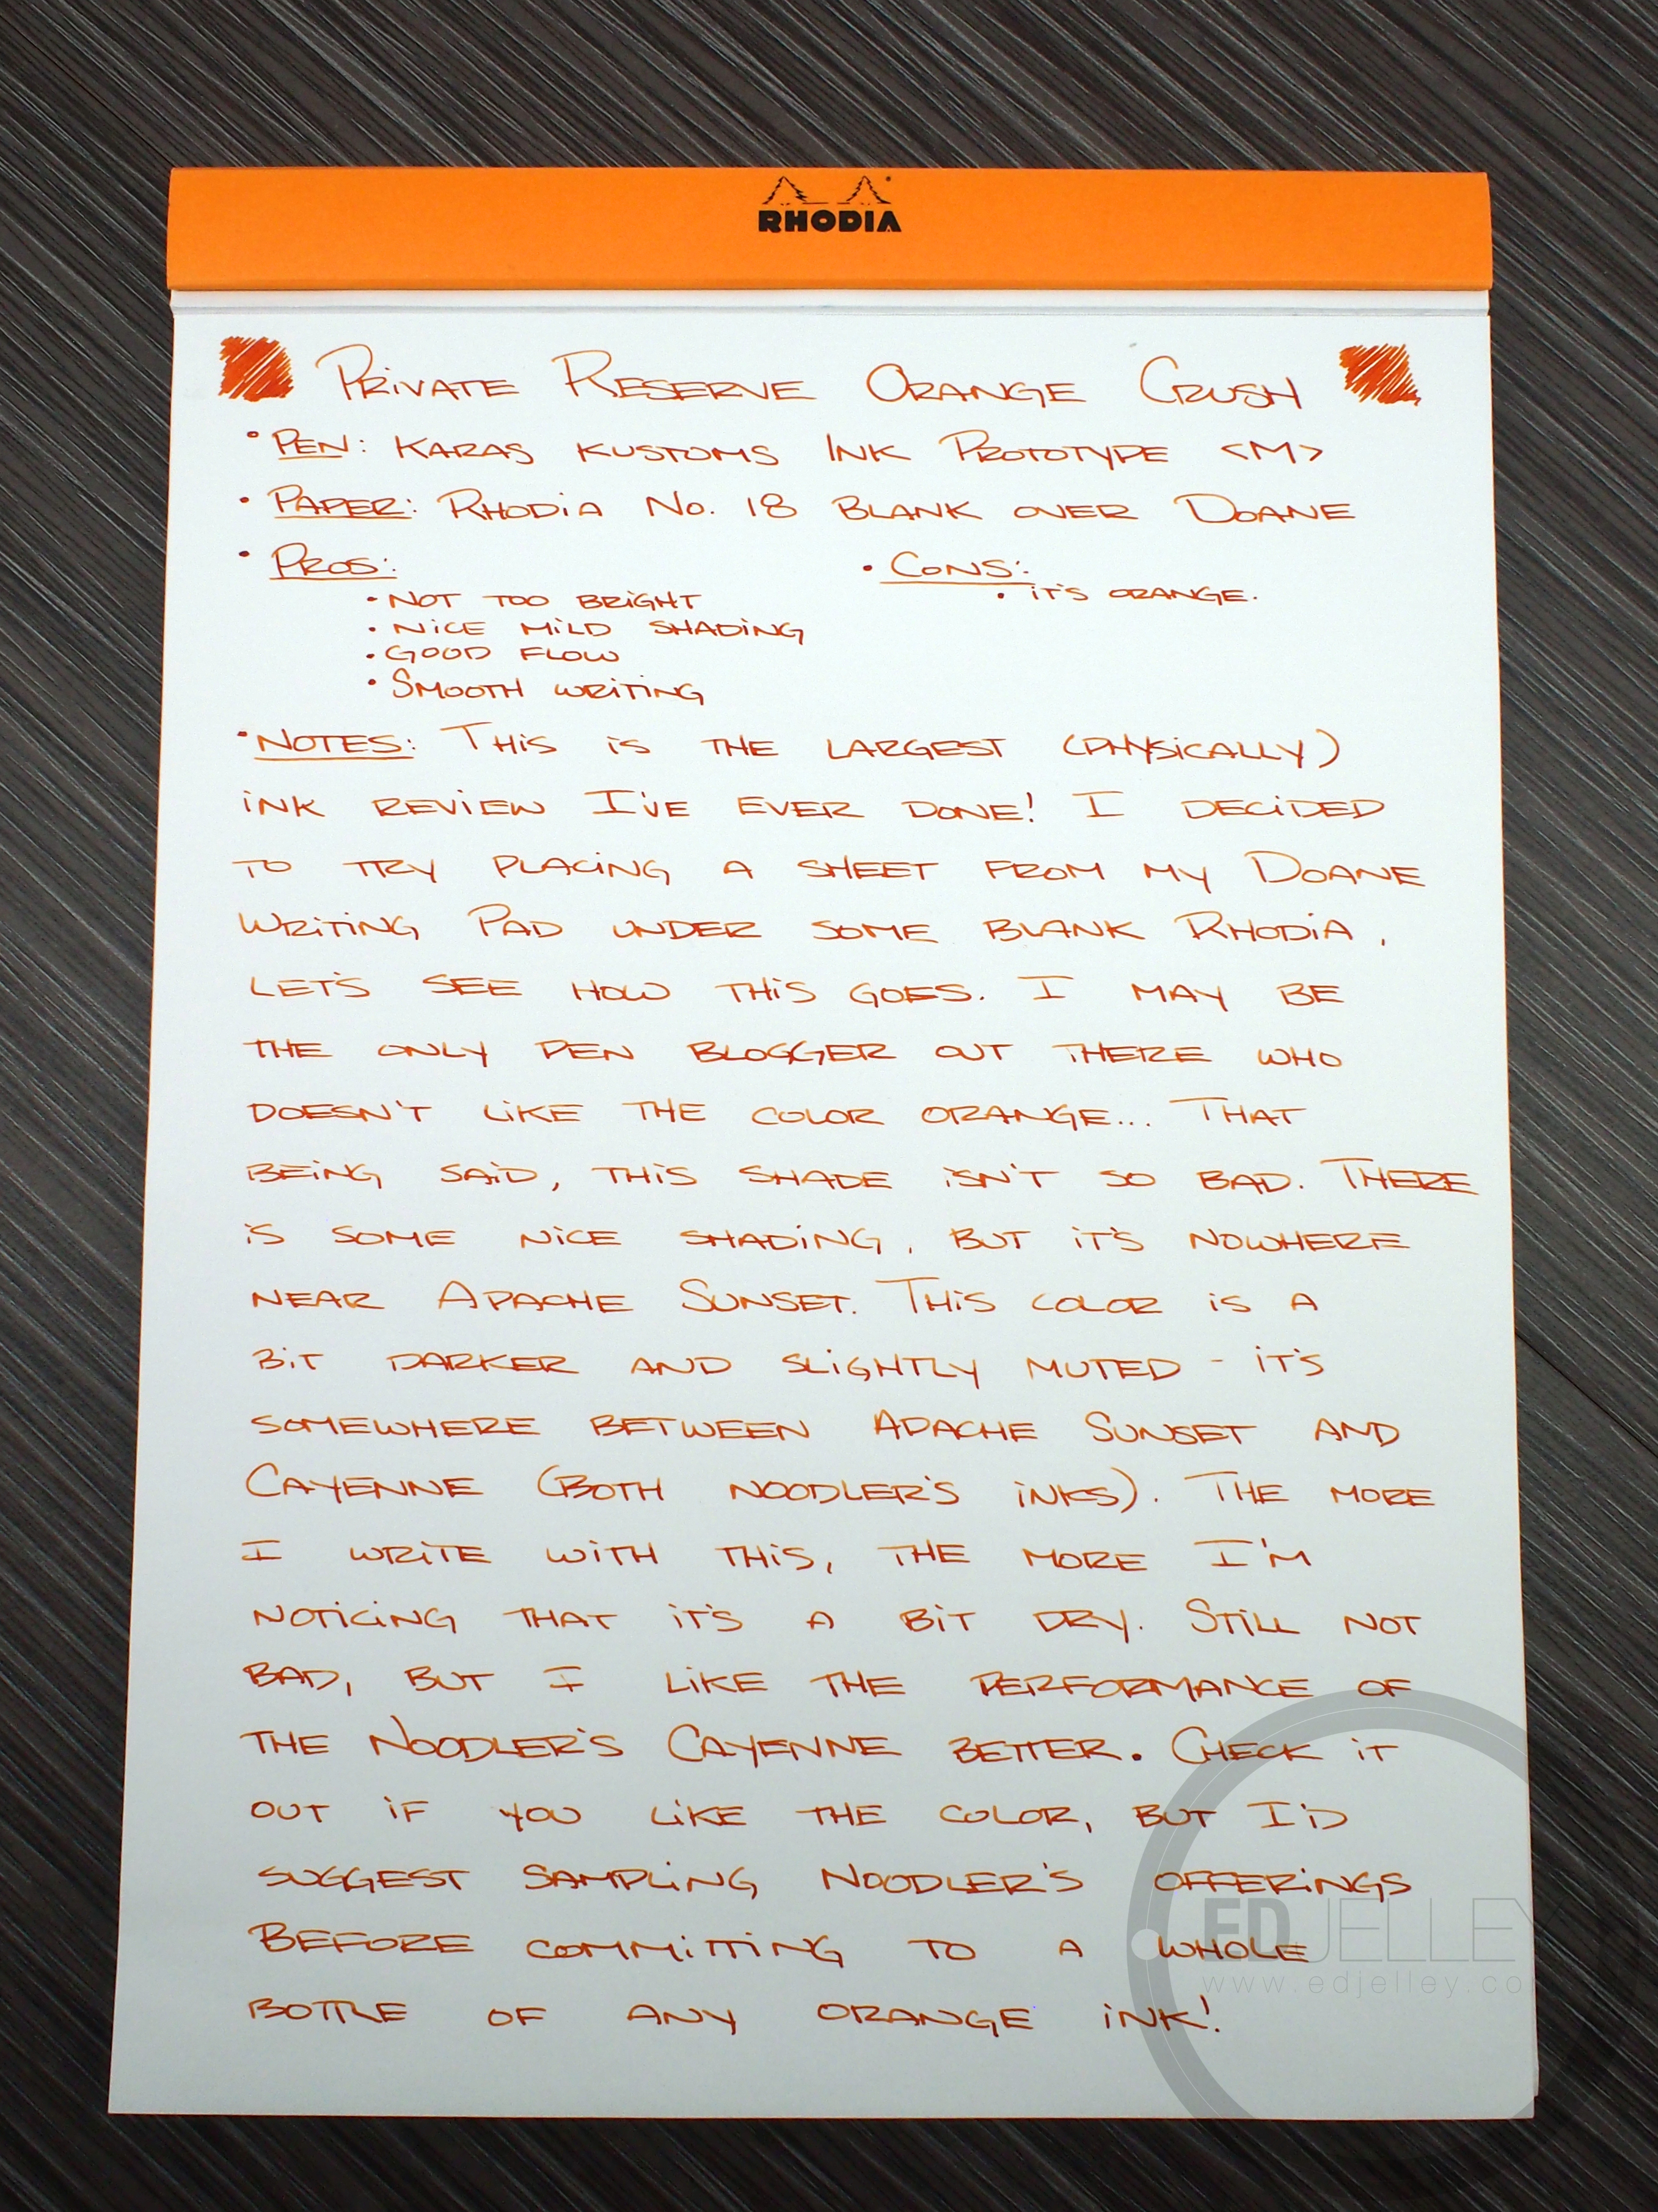 RHODIA
Private Reserve Orange Crush
• Pen: Karas Kustoms Ink Prototype <M>
• Paper: Rhodia No. 18 Blank over Doane
• Pros: • Cons:
• Not too bright • it's orange.
• Nice mild shading
• Good flow
• Smooth writing
• Notes: This is the largest (physically)
ink review I've ever done! I decided
to try placing a sheet from my Doane
Writing Pad under some blank Rhodia,
let's see how this goes. I may be
the only pen blogger out there who
doesn't like the color orange... That
being said, this shade isn't so bad. There
is some nice shading, but it's nowhere
near Apache Sunset. This color is a
bit darker and slightly muted - it's
somewhere between Apache Sunset and
Cayenne (Both Noodler's inks). The more
I write with this, the more I'm
noticing that it's a bit dry. Still not
bad, but I like the performance of
the Noodler's Cayenne better. Check it
out if you like the color, but I'd
suggest sampling Noodler's offerings
before committing to a whole
bottle of any orange ink!
EDJELLEY
www.edjelley.co